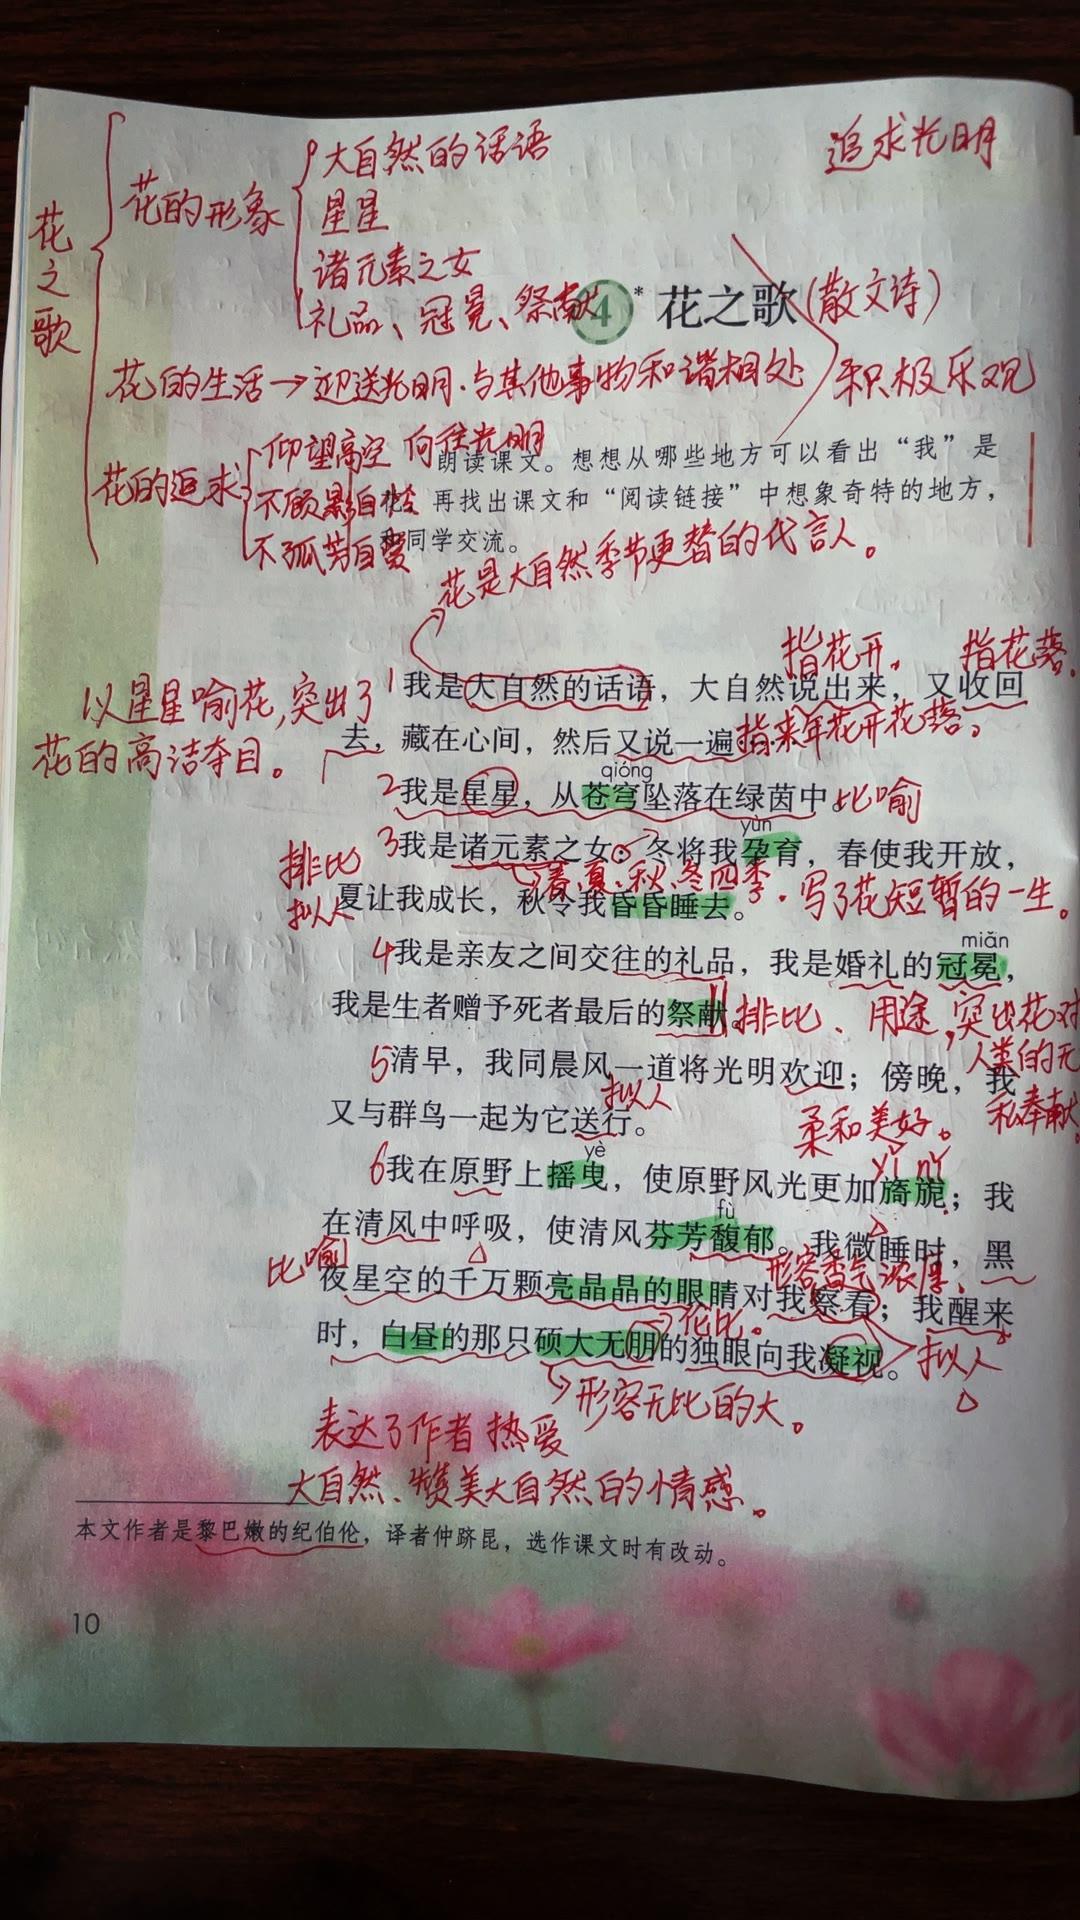 追求光明
花之歌
花的形象
大自然的话语
星星
诸元素之女
礼品、冠冕、祭献
4* 花之歌(散文诗)
花的生活→迎送光明.与其他事物和谐相处
积极乐观
花的追求
仰望高空 向往光明
不顾影自怜
不孤芳自赏
朗读课文。想想从哪些地方可以看出“我”是
再找出课文和“阅读链接”中想象奇特的地方，
同学交流。
花是大自然季节更替的代言人。
指花开。 指花落。
1我是大自然的话语，大自然说出来，又收回
以星星喻花,突出了
花的高洁夺目。
去，藏在心间，然后又说一遍
指来年花开花落。
qióng
2我是星星，从苍穹坠落在绿茵中
比喻
yùn
3我是诸元素之女：冬将我孕育，春使我开放，
排比
拟人
春、夏、秋、冬四季.写了花短暂的一生。
夏让我成长，秋令我昏昏睡去。
miǎn
4我是亲友之间交往的礼品，我是婚礼的冠冕，
我是生者赠予死者最后的祭献。
排比、用途,突出花对
人类的无
私奉献。
5清早，我同晨风一道将光明欢迎；傍晚，我
拟人
又与群鸟一起为它送行。
柔和美好。
yè
yǐ nǐ
6我在原野上摇曳，使原野风光更加旖旎；我
fù
在清风中呼吸，使清风芬芳馥郁。我微睡时，黑
比喻
形容香气浓厚。
夜星空的千万颗亮晶晶的眼睛对我察看；我醒来
时，白昼的那只硕大无朋的独眼向我凝视。
伦比。
拟人
形容无比的大。
表达了作者热爱
大自然、赞美大自然的情感。
本文作者是黎巴嫩的纪伯伦，译者仲跻昆，选作课文时有改动。
10